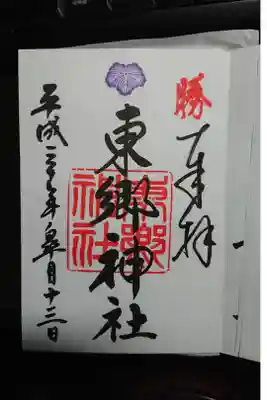 勝
奉拝
東郷神社
東郷
神社
平成二十七年皐月十三日